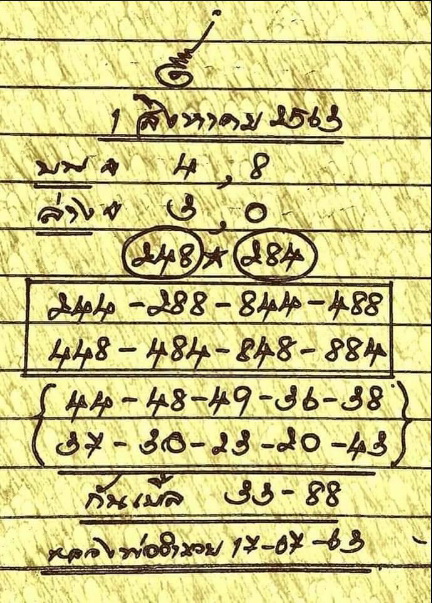 1 สิงหาคม 2563
บน + 4, 8
ล่าง + 3, 0
248 * 284
244 - 288 - 844 - 488
448 - 484 - 848 - 884
44 - 48 - 49 - 36 - 38
37 - 30 - 23 - 20 - 43
กันเบิ้ล 33 - 88
17-07-63